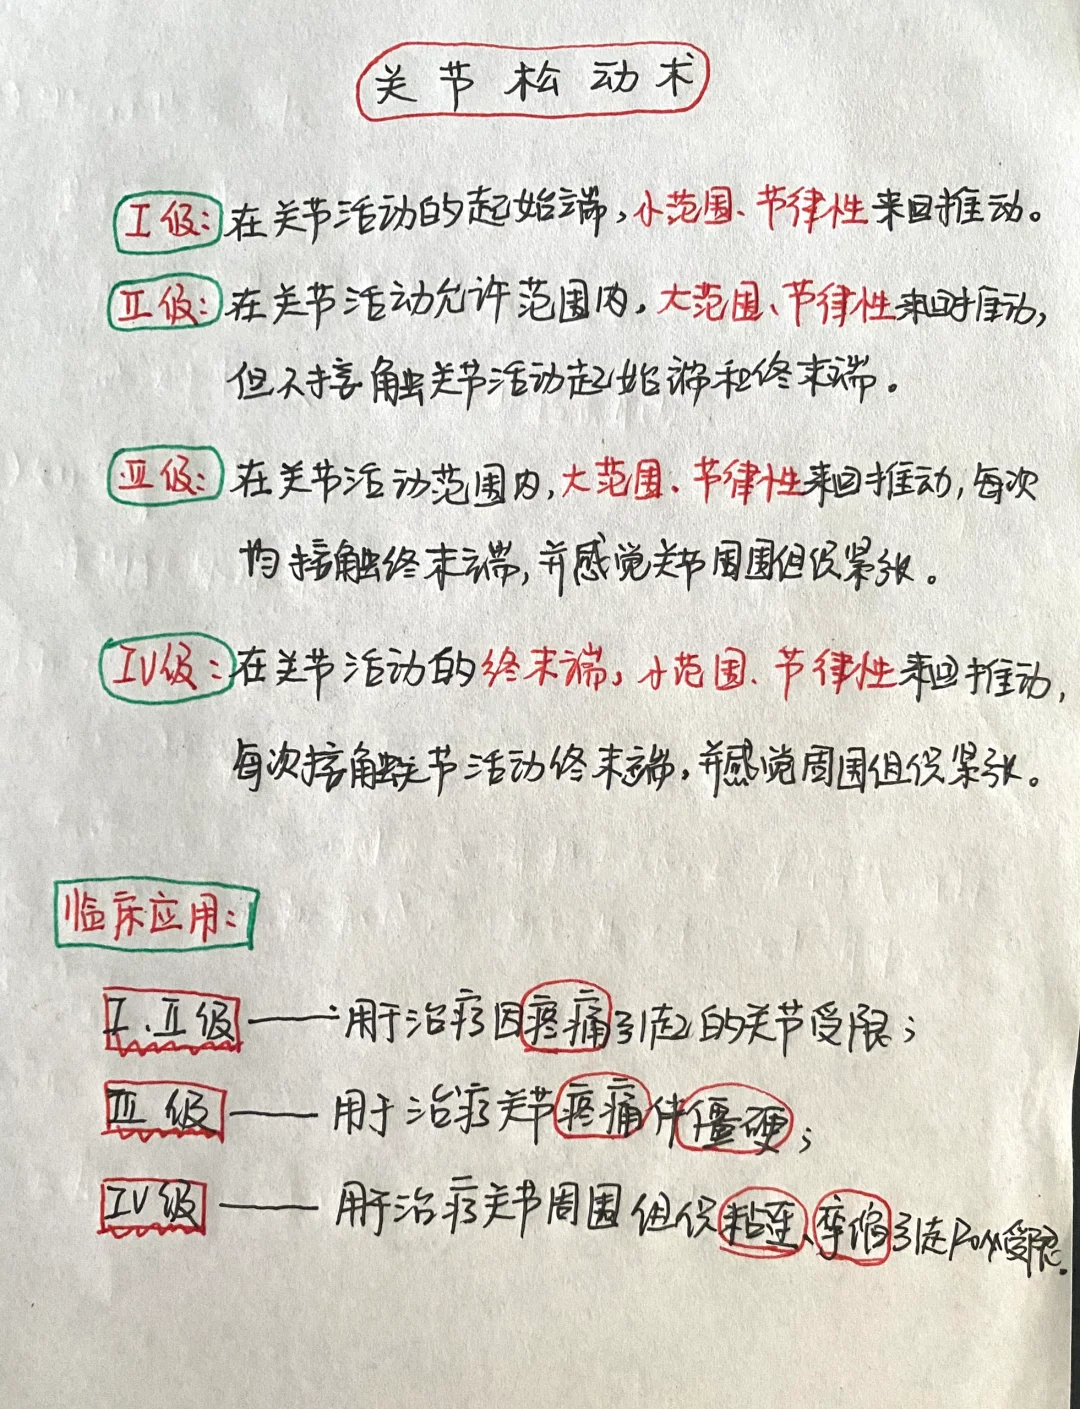 关节松动术
I级:在关节活动的起始端,小范围、节律性来回推动。
II级:在关节活动允许范围内,大范围、节律性来回推动,
但不接触关节活动起始端和终末端。
III级:在关节活动范围内,大范围、节律性来回推动,每次
均接触终末端,并感觉关节周围组织紧张。
IV级:在关节活动的终末端,小范围、节律性来回推动,
每次接触关节活动终末端,并感觉周围组织紧张。
临床应用:
I、II级——用于治疗因疼痛引起的关节受限;
III级——用于治疗关节疼痛伴僵硬;
IV级——用于治疗关节周围组织粘连、挛缩引起Rom受限.